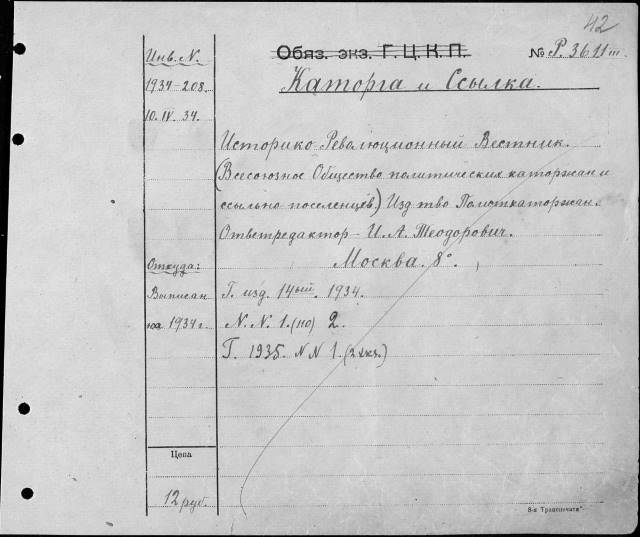 42
Инв. N.
Обяз. экз. Г. Ц. К. П.
№ Р. 36 11 III.
1934-208.
Каторга и Ссылка.
10. IV. 34.
Историко-Революционный Вестник.
(Всесоюзное Общество политических каторжан и
ссыльно-поселенцев.) Изд-тво Политкаторжан.
Ответредактор - И. А. Теодорович.
Москва. 8°.
Откуда:
Выписан
на 1934 г.
Г. изд. 14ый. 1934.
N. N. 1. (но) 2.
Г. 1935. N N 1. (2 экз.)
Цена
12 руб.
8-я Транспечати